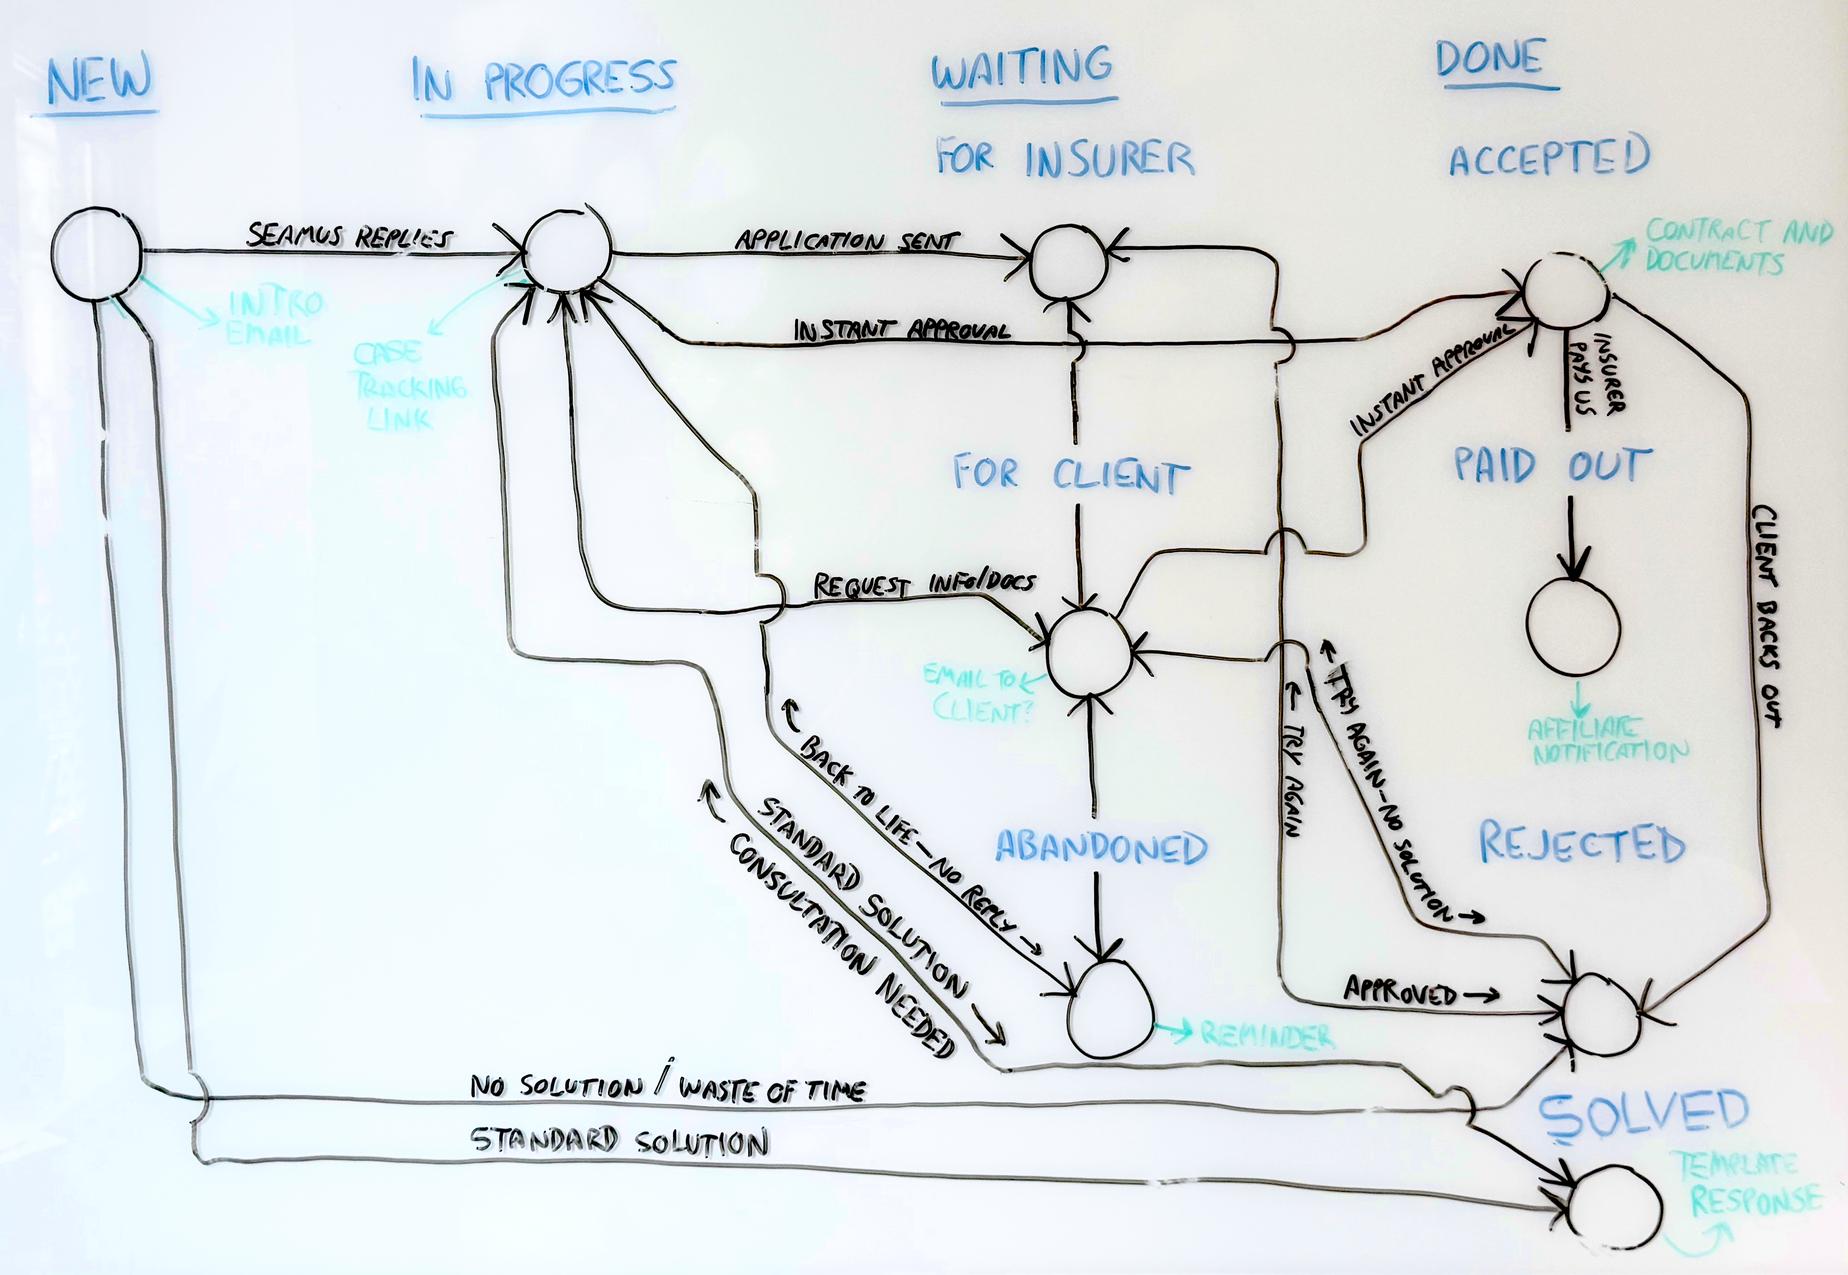 NEW
IN PROGRESS
WAITING
DONE
FOR INSURER
ACCEPTED
SEAMUS REPLIES
APPLICATION SENT
CONTRACT AND
DOCUMENTS
INTRO
EMAIL
INSTANT APPROVAL
CASE
TRACKING
LINK
INSTANT APPROVAL
INSURER
PAYS US
FOR CLIENT
PAID OUT
CLIENT BACKS OUT
REQUEST INFO/DOCS
EMAIL TO
CLIENT?
← TRY AGAIN
← TRY AGAIN – NO SOLUTION →
AFFILIATE
NOTIFICATION
← BACK TO LIFE – NO REPLY →
STANDARD SOLUTION →
← CONSULTATION NEEDED
ABANDONED
REJECTED
APPROVED →
REMINDER
NO SOLUTION / WASTE OF TIME
STANDARD SOLUTION
SOLVED
TEMPLATE
RESPONSE